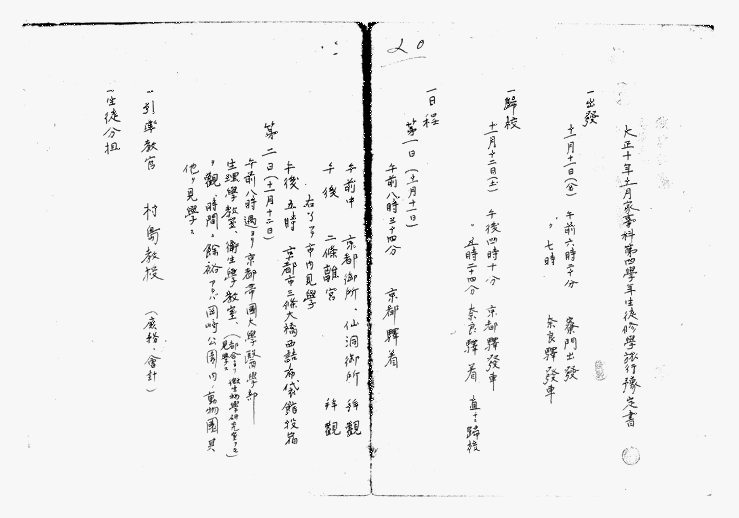 20
大正十年十一月家事科第四學年生徒修學旅行豫定書
一出發
十一月十一日(金) 午前六時十分 寮門出發
〃 七時 奈良驛發車
一歸校
十一月十二日(土) 午後四時十分 京都驛發車
〃 五時二十四分 奈良驛着 直ニ歸校
一日程
第一日(十一月十一日)
午前八時三十四分 京都驛着
午前中 京都御所、仙洞御所 拜觀
午後 二條離宮 拜觀
右了ツテ市内見學
午後五時 京都市三條大橋西詰布袋館投宿
第二日(十一月十二日)
午前八時過ヨリ京都帝國大學醫學部
生理學教室、衛生學教室、
(都合ニヨリ微生物學研究室ヲモ見學ス)
ヲ觀、時間ニ餘裕アラバ岡崎公園内、動物園其
他ヲ見學ス
一引率教官 村島教授 (庶務、會計)
一生徒分担